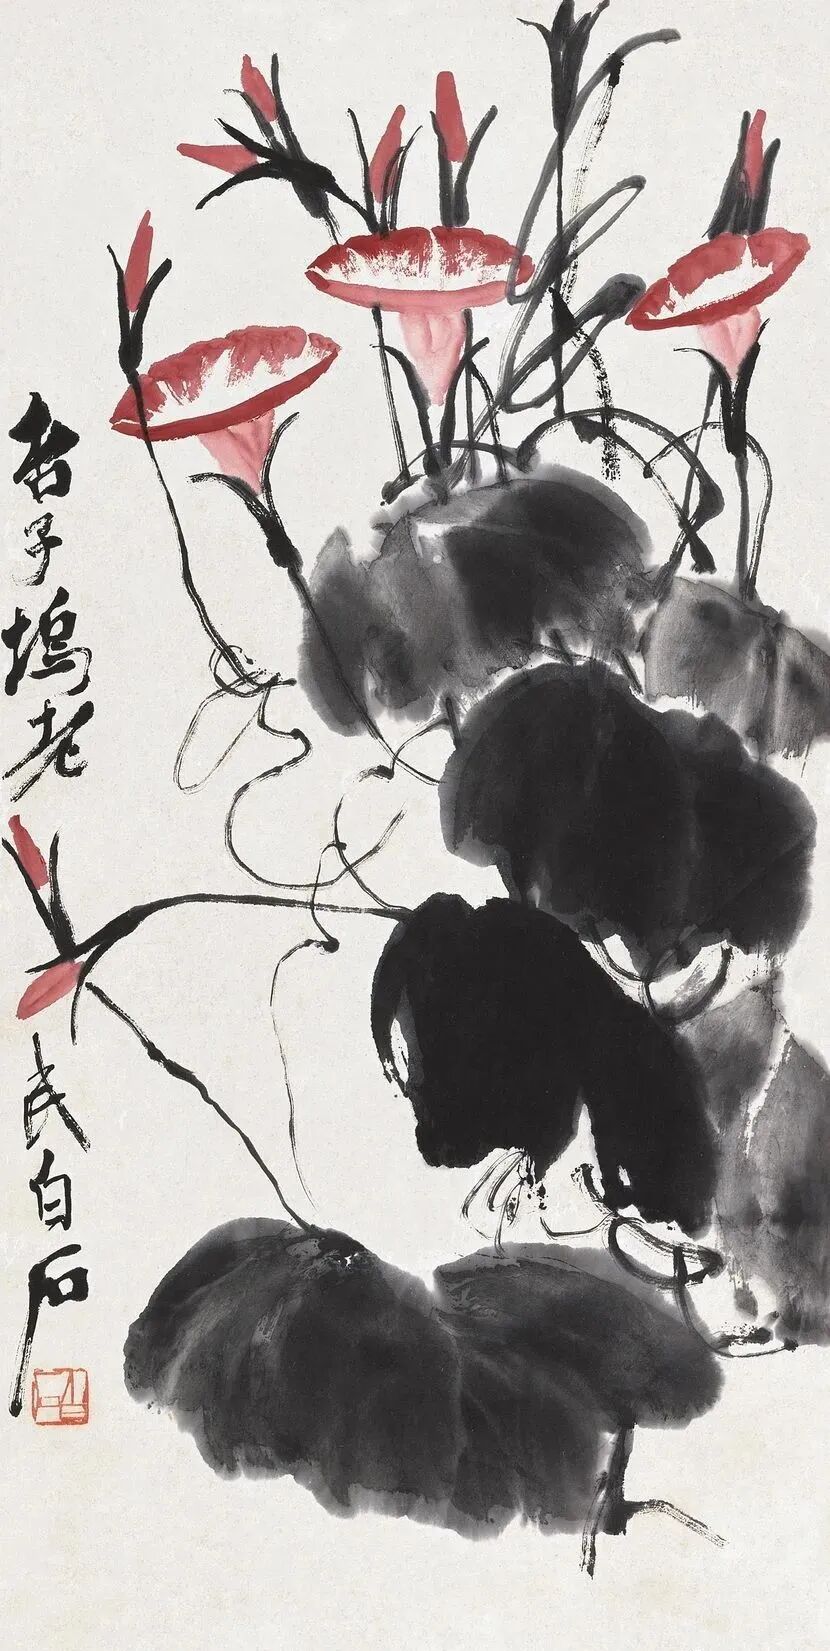 杏子塢老民白石